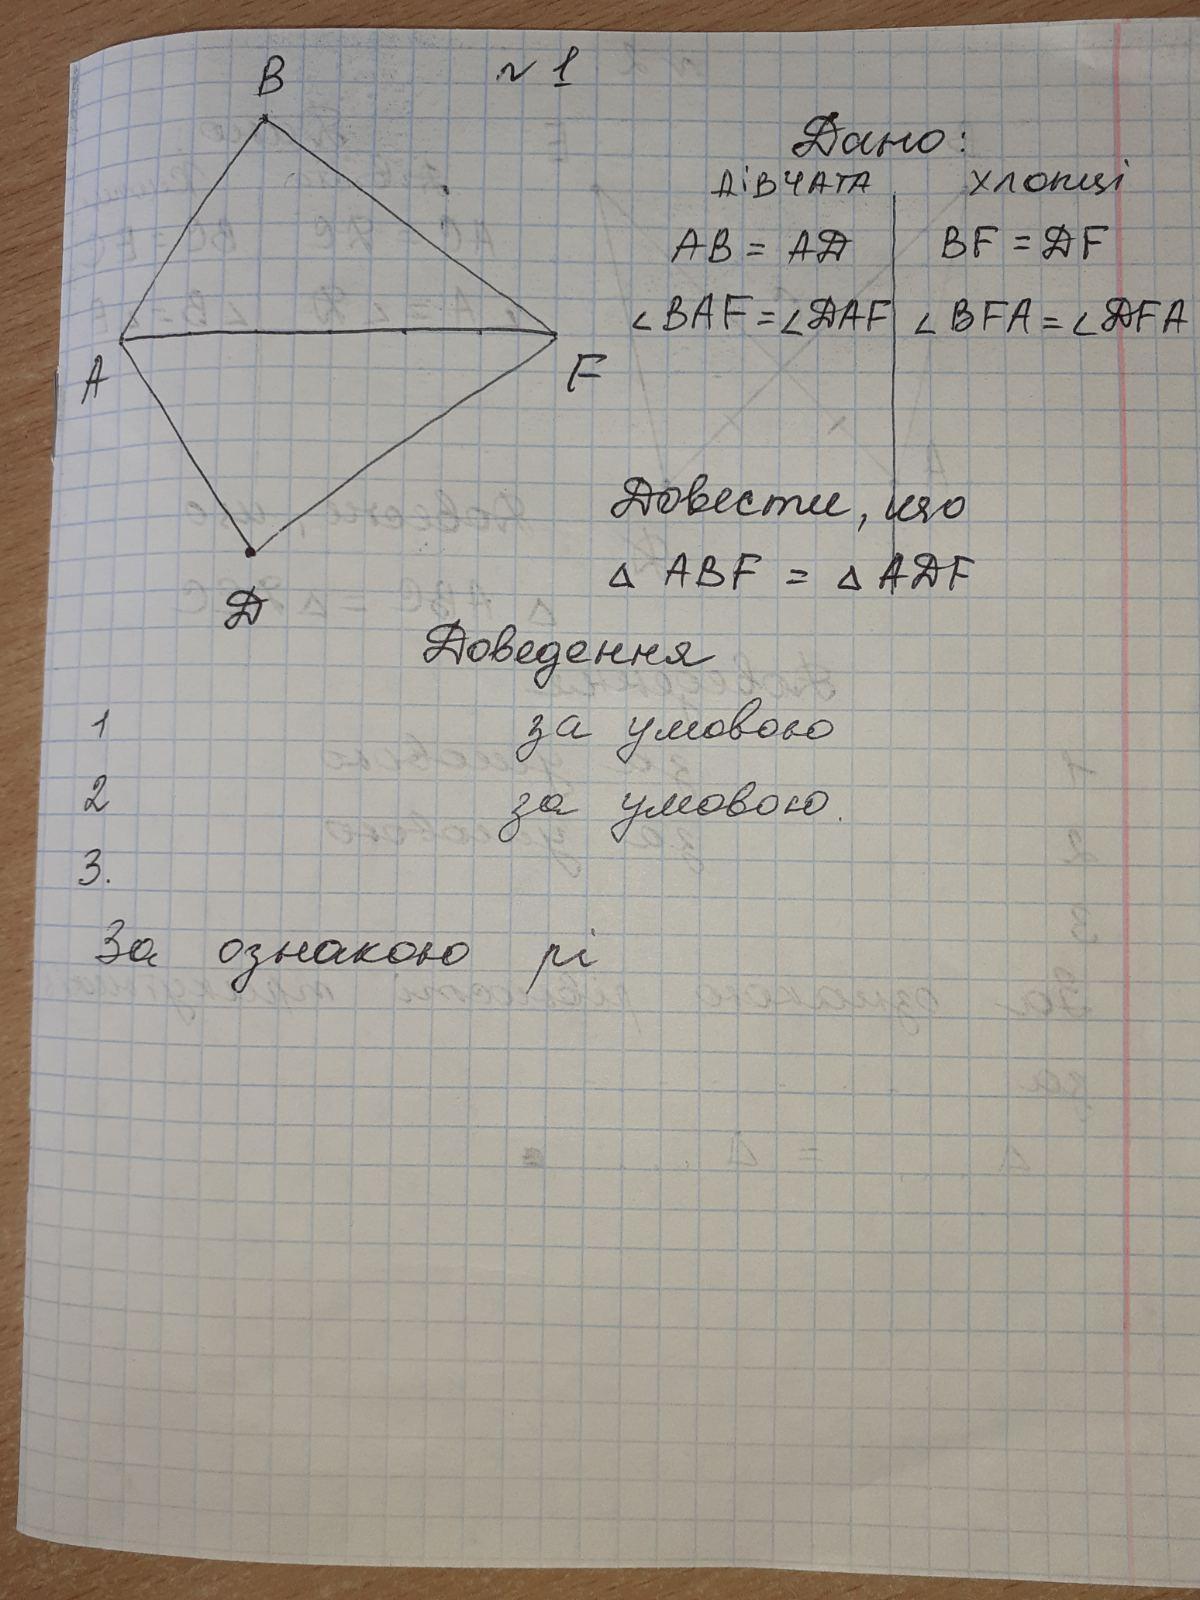 N 1
B
A
F
D
Дано:
ДІВЧАТА ХЛОПЦІ
AB = AD BF = DF
∠BAF = ∠DAF ∠BFA = ∠DFA
Довести, що
△ ABF = △ ADF
Доведення
1 за умовою
2 за умовою.
3.
За ознакою рі